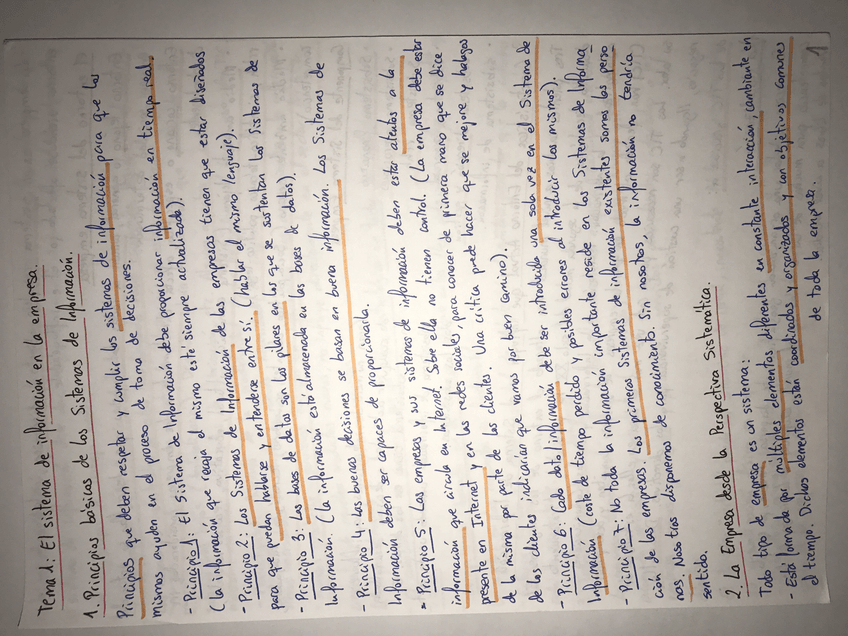 Tema 1: El sistema de información en la empresa.
1. Principios básicos de los Sistemas de Información.
Principios que deben respetar y cumplir los sistemas de información para que los
mismos ayuden en el proceso de toma de decisiones.
- Principio 1: El Sistema de Información debe proporcionar información en tiempo real.
(la información que recoja el mismo esté siempre actualizada).
- Principio 2: Los Sistemas de Información de las empresas tienen que estar diseñados
para que puedan hablarse y entenderse entre sí. (hablar el mismo lenguaje).
- Principio 3: Las bases de datos son los pilares en las que se sustentan los Sistemas de
Información. (la información está almacenada en las bases de datos).
- Principio 4: Las buenas decisiones se basan en buena información. Los Sistemas de
Información deben ser capaces de proporcionarla.
- Principio 5: Las empresas y sus sistemas de información deben estar atentos a la
información que circula en Internet. Sobre ella no tienen control. (La empresa debe estar
presente en Internet y en las redes sociales, para conocer de primera mano que se dice
de la misma por parte de los clientes. Una crítica puede hacer que se mejore y halagos
de los clientes indicarían que vamos por buen camino).
- Principio 6: Cada dato/información debe ser introducido una sola vez en el Sistema de
Información (coste de tiempo perdido y posibles errores al introducir los mismos).
- Principio 7: No toda la información importante reside en los Sistemas de Informa
ción de las empresas. Los primeros Sistemas de información existentes somos las perso
nas. Nosotros disponemos de conocimiento. Sin nosotros, la información no tendría
sentido.
2. La Empresa desde la Perspectiva Sistemática.
Todo tipo de empresa es un sistema:
- Está formada por múltiples elementos diferentes en constante interacción, cambiante en
el tiempo. Dichos elementos están coordinados y organizados y con objetivos comunes
de toda la empresa.
1